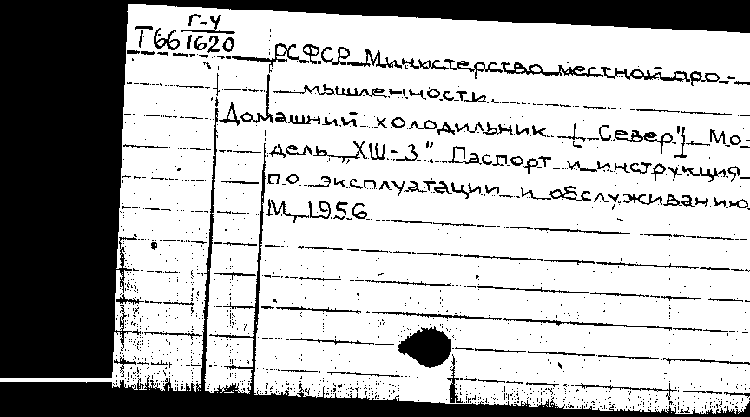 Г-4
Т66 1620
РСФСР Министерство местной про-
мышленности.
Домашний холодильник [„Север"]. Мо-
дель „ХШ-3". Паспорт и инструкция
по эксплуатации и обслуживанию
М, 1956